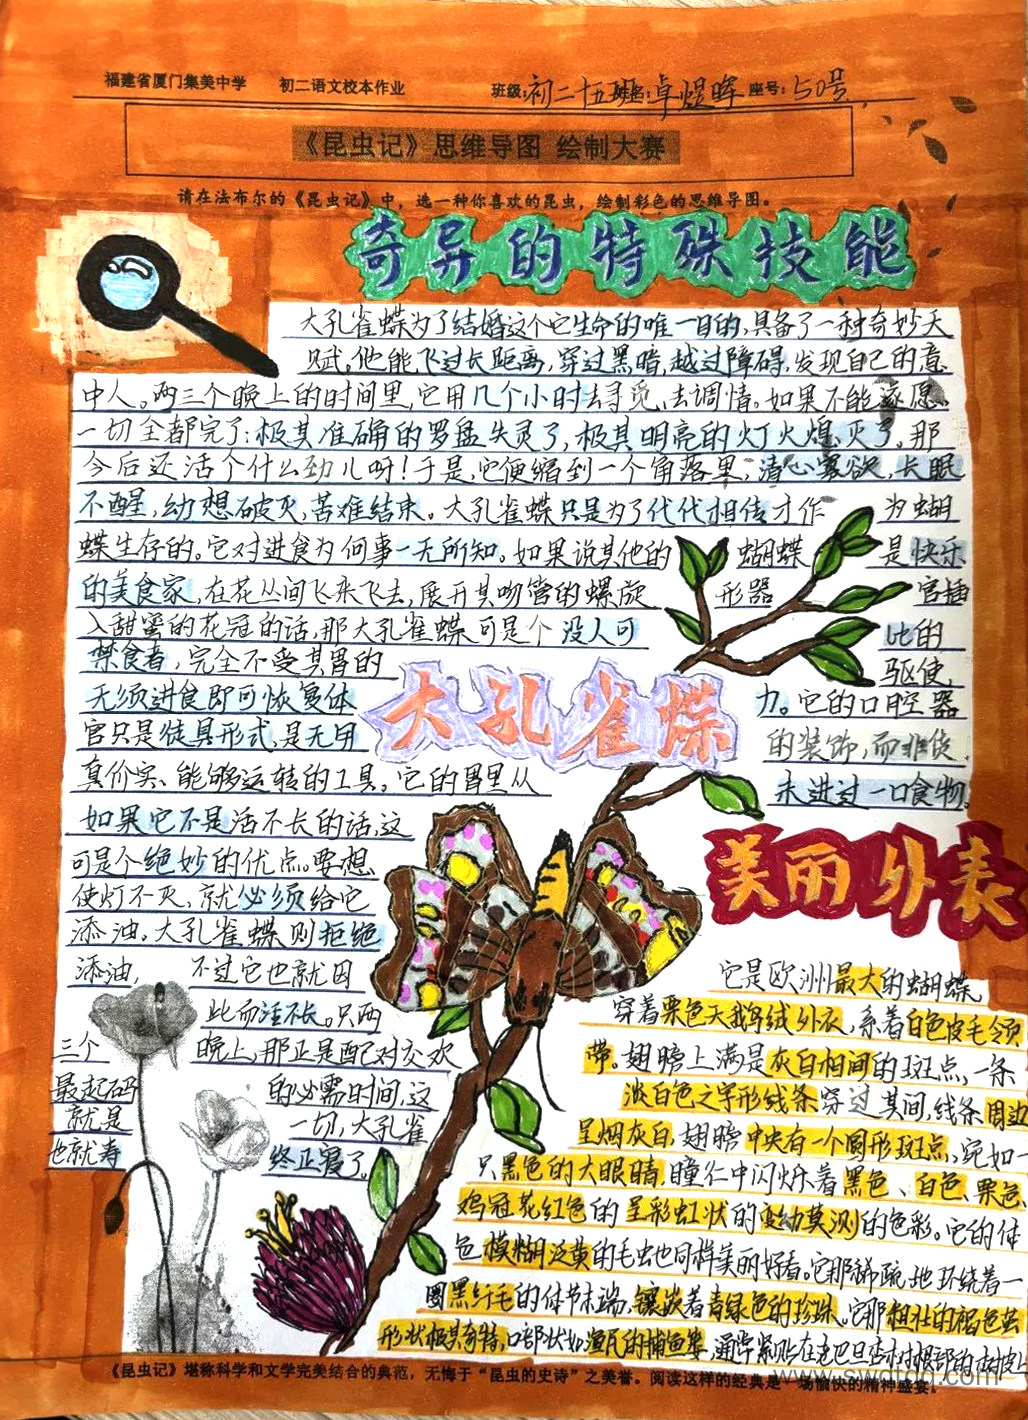 福建省厦门集美中学 初二语文校本作业 班级:初二十五班 姓名:卓煜晖 座号:50号
《昆虫记》思维导图 绘制大赛
请在法布尔的《昆虫记》中,选一种你喜欢的昆虫,绘制彩色的思维导图。
奇异的特殊技能
大孔雀蝶为了结婚这个它生命的唯一目的,具备了一种奇妙天
赋。他能飞过长距离,穿过黑暗,越过障碍,发现自己的意
中人。两三个晚上的时间里,它用几个小时去寻觅,去调情。如果不能遂愿、
一切全都完了:极其准确的罗盘失灵了,极其明亮的灯火熄灭了。那
今后还活个什么劲儿呀!于是,它便缩到一个角落里,清心寡欲,长眠
不醒,幻想破灭,苦难结束。大孔雀蝶只是为了代代相传才作为蝴
蝶生存的。它对进食为何事一无所知。如果说其他的蝴蝶是快乐
的美食家,在花丛间飞来飞去,展开其吻管的螺旋形器官插
入甜蜜的花冠的话,那大孔雀蝶可是个没人可比的
禁食者,完全不受其胃的驱使,
无须进食即可恢复体力。它的口腔器
官只是徒具形式,是无用的装饰,而非货
真价实、能够运转的工具。它的胃里从未进过一口食物。
大孔雀蝶
如果它不是活不长的话,这
可是个绝妙的优点。要想
使灯不灭,就必须给它
添油。大孔雀蝶则拒绝
添油,不过它也就因
此而活不长。只两
三个晚上,那正是配对交欢
最起码的必需时间,这
就是一切,大孔雀
也就寿终正寝了。
美丽外表
它是欧洲最大的蝴蝶,
穿着栗色天鹅绒外衣,系着白色皮毛领
带。翅膀上满是灰白相间的斑点,一条
淡白色之字形线条穿过其间,线条周边
呈烟灰白,翅膀中央有一个圆形斑点,宛如一
只黑色的大眼睛,瞳仁中闪烁着黑色、白色、栗色、
鸡冠花红色的呈彩虹状的变幻莫测的色彩。它的体
色模糊泛黄的毛虫也同样美丽好看。它那稀疏地环绕着一
圈黑纤毛的体节末端,镶嵌着青绿色的珍珠。它那粗壮的褐色茧
形状极其奇特,口部状如渔民的捕鱼篓,通常紧贴在老巴旦杏树根部的树皮上
《昆虫记》堪称科学和文学完美结合的典范,无愧于“昆虫的史诗”之美誉。阅读这样的经典是一场愉快的精神盛宴。